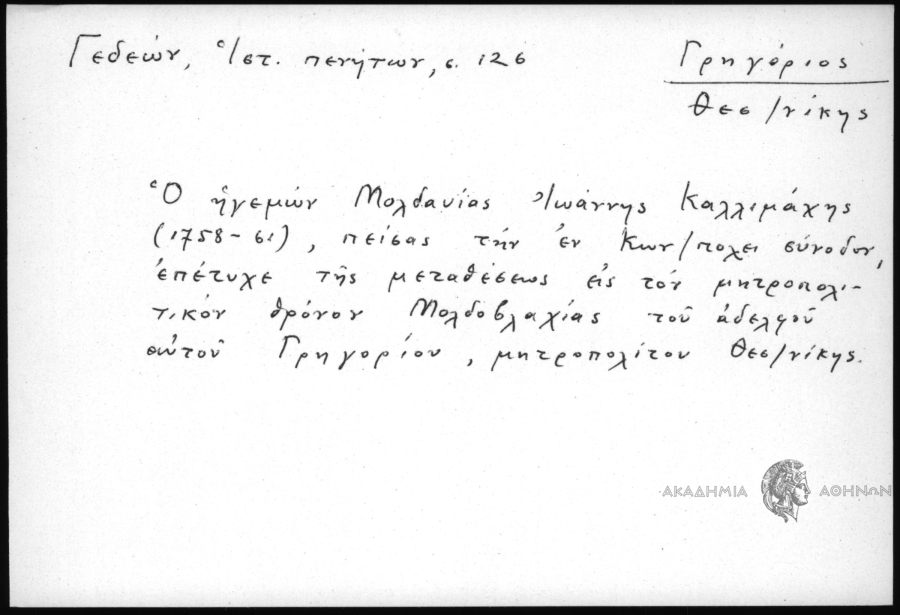 Γεδεών, Ἱστ. πενήτων, σ. 126
Γρηγόριος
Θεσ/νίκης
Ὁ ἡγεμών Μολδαυίας Ἰωάννης Καλλιμάχης
(1758-61), πείσας τήν ἐν Κων/πολει σύνοδον,
ἐπέτυχε τῆς μεταθέσεως εἰς τόν μητροπολι-
τικόν θρόνον Μολδοβλαχίας τοῦ ἀδελφοῦ
αὐτοῦ Γρηγορίου, μητροπολίτου Θεσ/νίκης.
ΑΚΑΔΗΜΙΑ ΑΘΗΝΩΝ